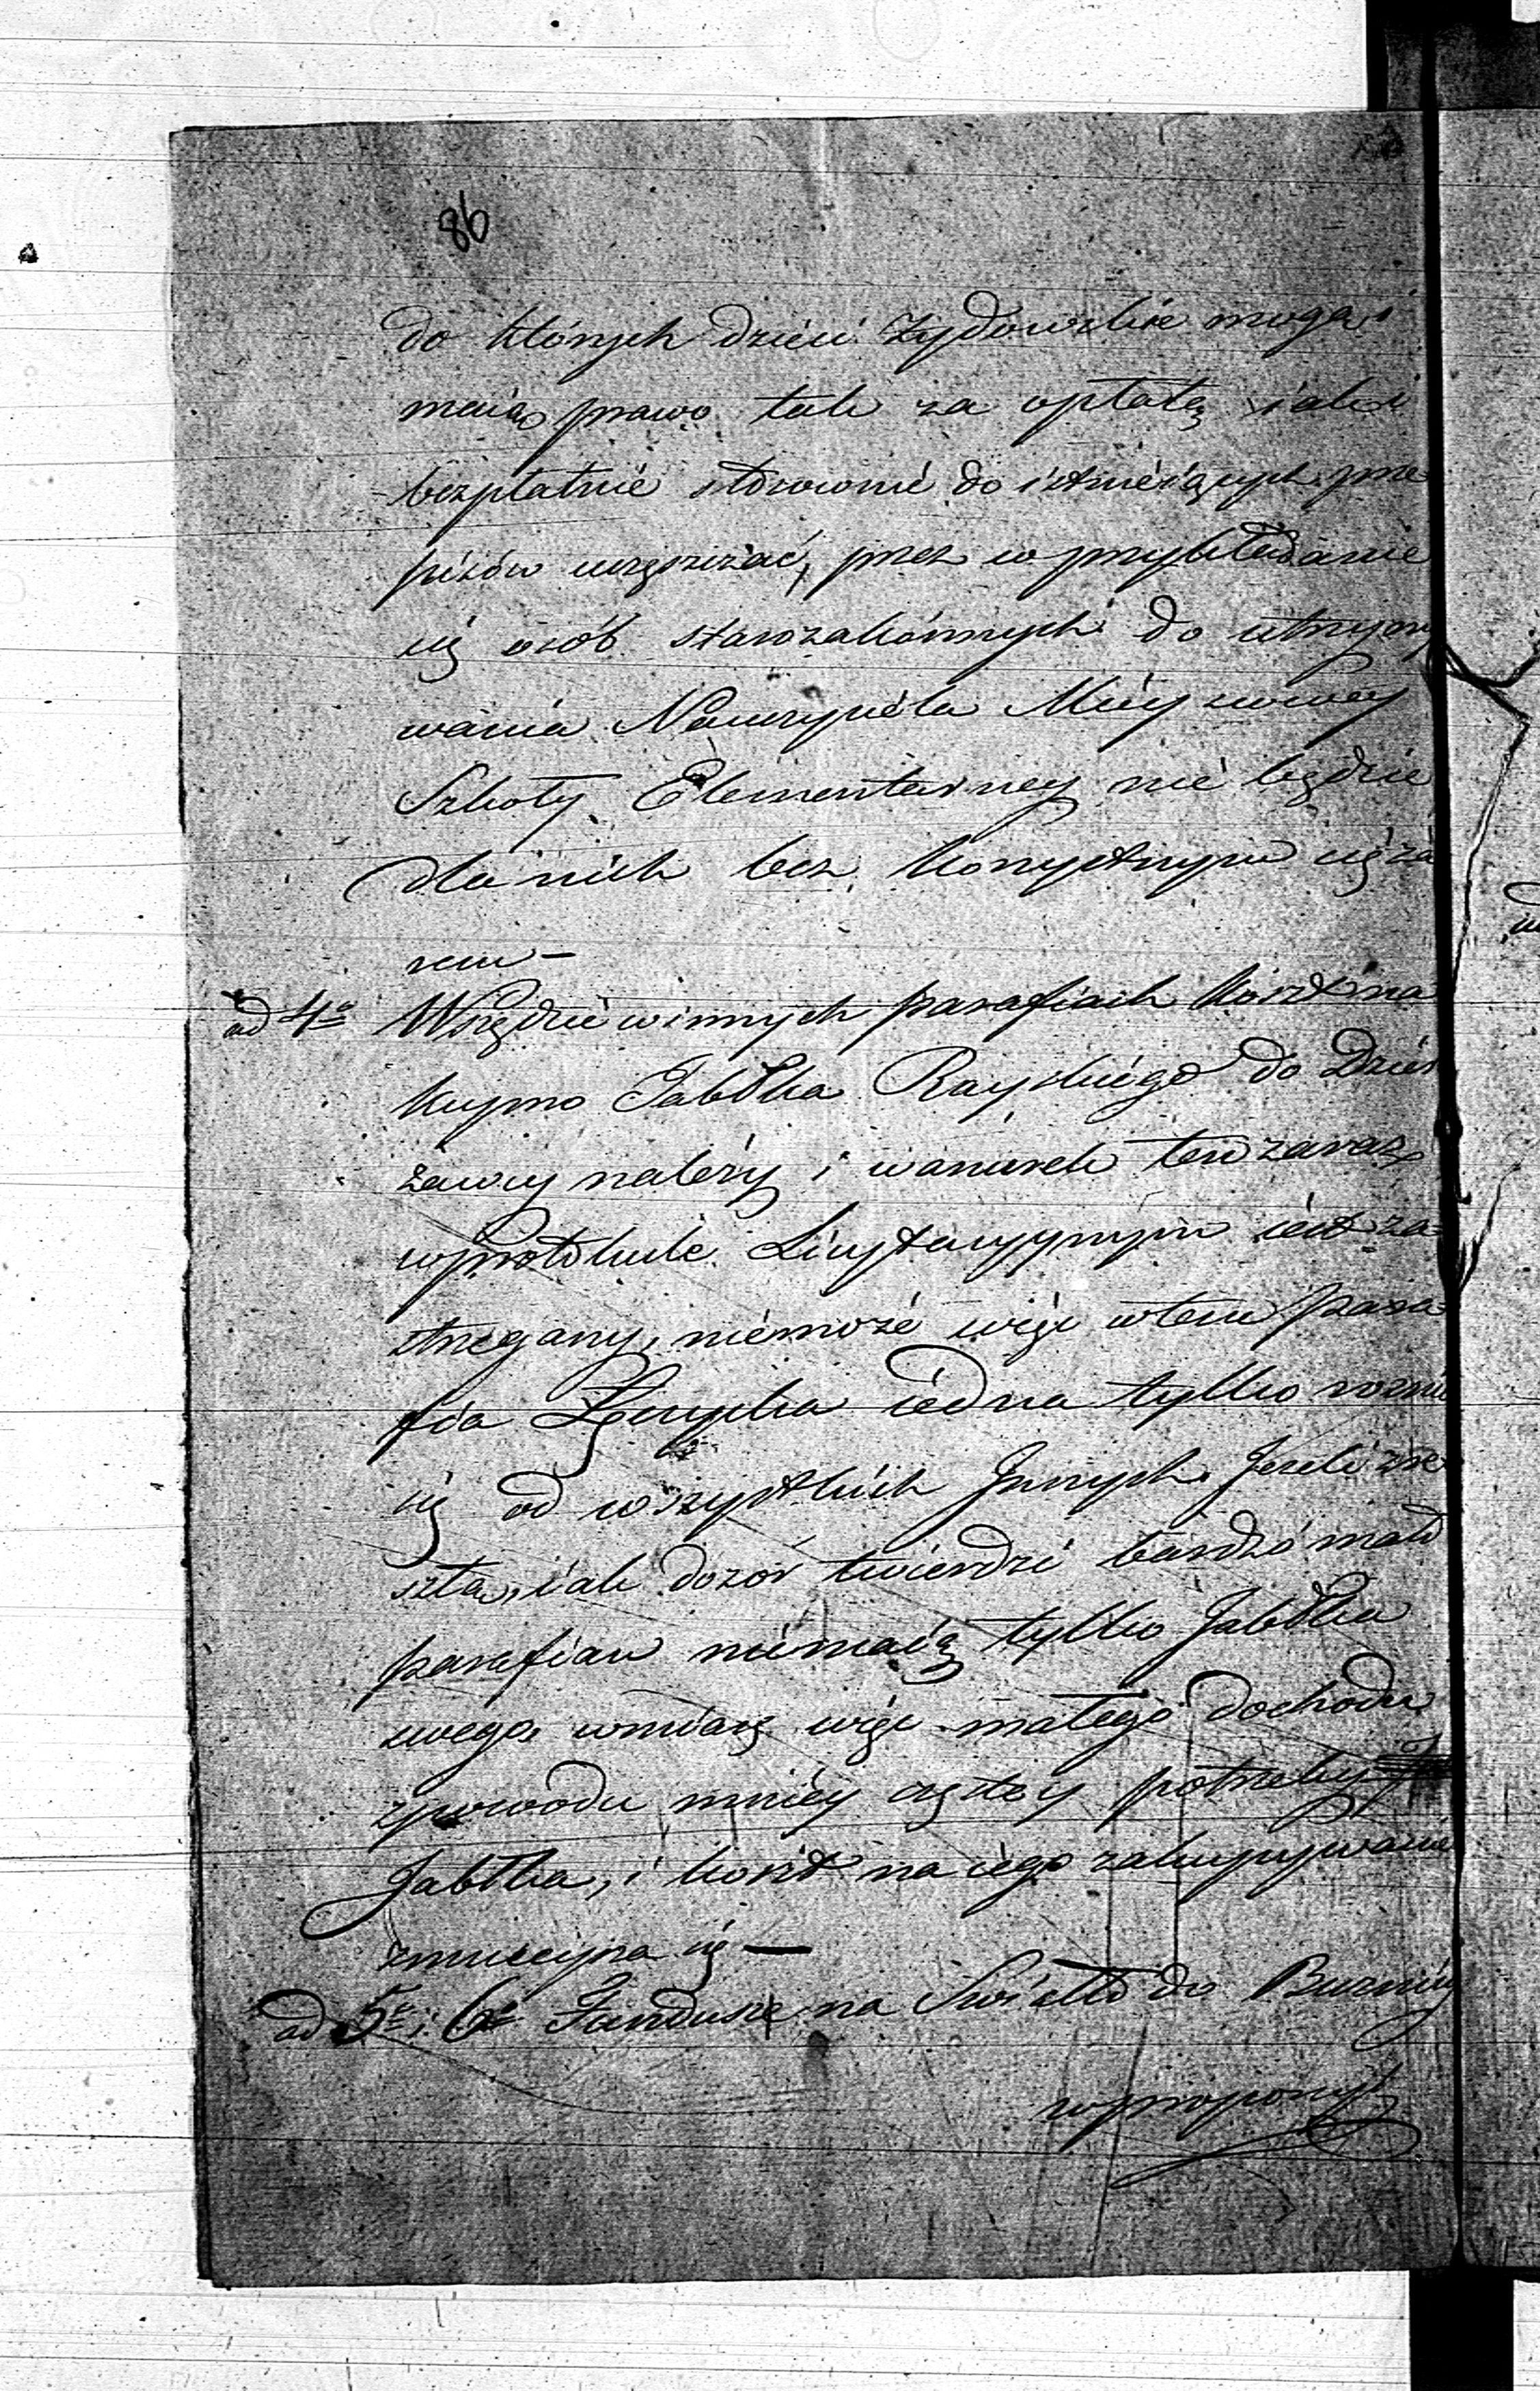 86
do których dzieci Żydowskie mogą i
maią prawo tak za opłatą iak i
bezpłatnie stosownie do istnieiących prze
pisów uczęszczać, przez co przykładanie
się osób starozakonnych do utrzymy
wania Nauczyciela Mieyscowey
Szkoły Elementarney nie będzie
dla nich bez korzystnym cięża
rem —
ad 4o Wszędzie w innych parafiach koszt na
kupno Jabłka Rayskiego do Dzier
zawcy należy i warunek ten zaraz
w protokule Licytacyjnym iest za-
strzegany, niemoże więc w tem para-
fia Łęczycka iedna tylko roznić
się od wszystkich Jnnych. Jeżeli zre
sztą iak dozór twierdzi bardzo mało
parafian niemaią tylko Jabłka
swego, w miarę więc małego dochodu
z powodu mniey częstey potrzeby
Jabłka, i koszt na iego zakupywanie
zmnieysza się —
ad 5o i 6o Fundusz na Swiatło do Buznicy
w propozyc